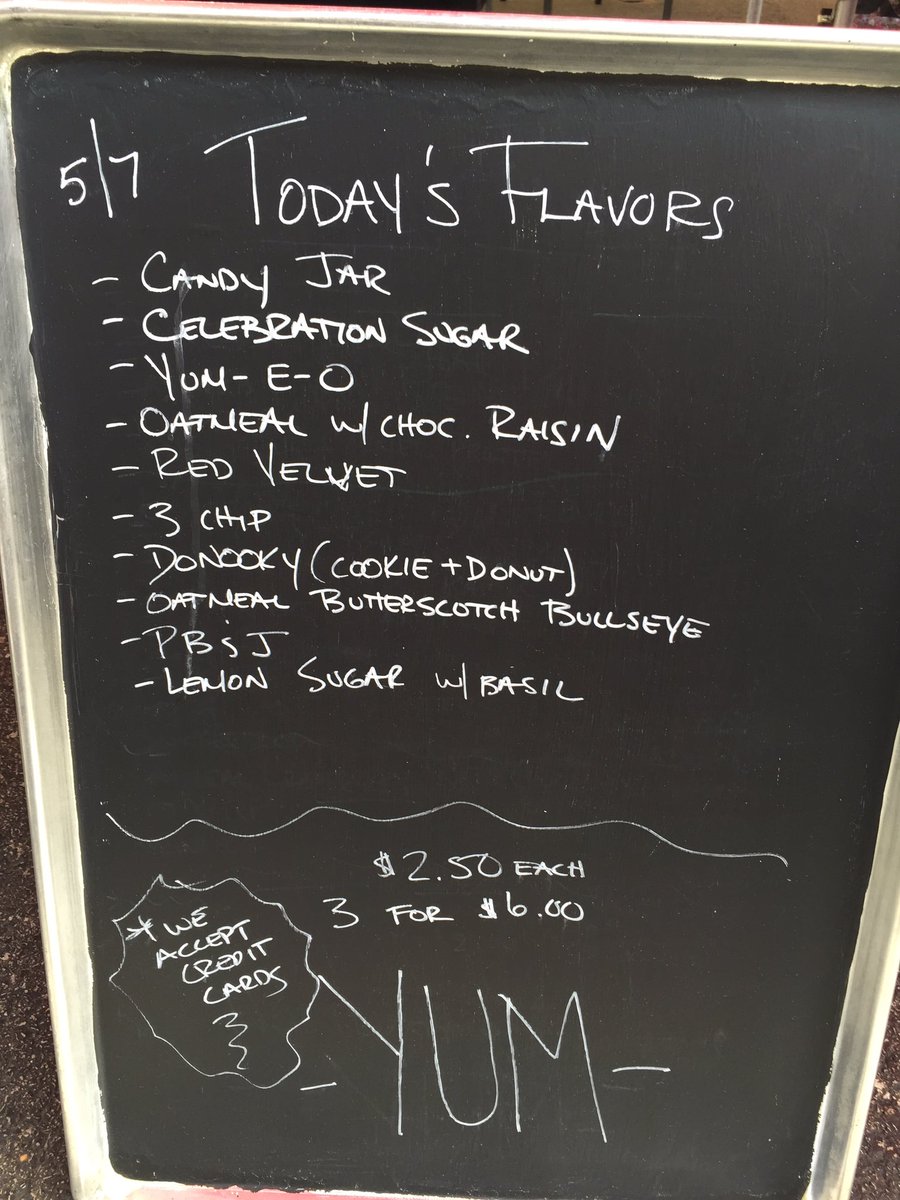 5/7 TODAY'S FLAVORS
- CANDY JAR
- CELEBRATION SUGAR
- YUM-E-O
- OATMEAL W/ CHOC. RAISIN
- RED VELVET
- 3 CHIP
- DONOOKY (COOKIE + DONUT)
- OATMEAL BUTTERSCOTCH BULLSEYE
- PB & J
- LEMON SUGAR W/ BASIL
$2.50 EACH
3 FOR $6.00
* WE
ACCEPT
CREDIT
CARDS
- YUM -